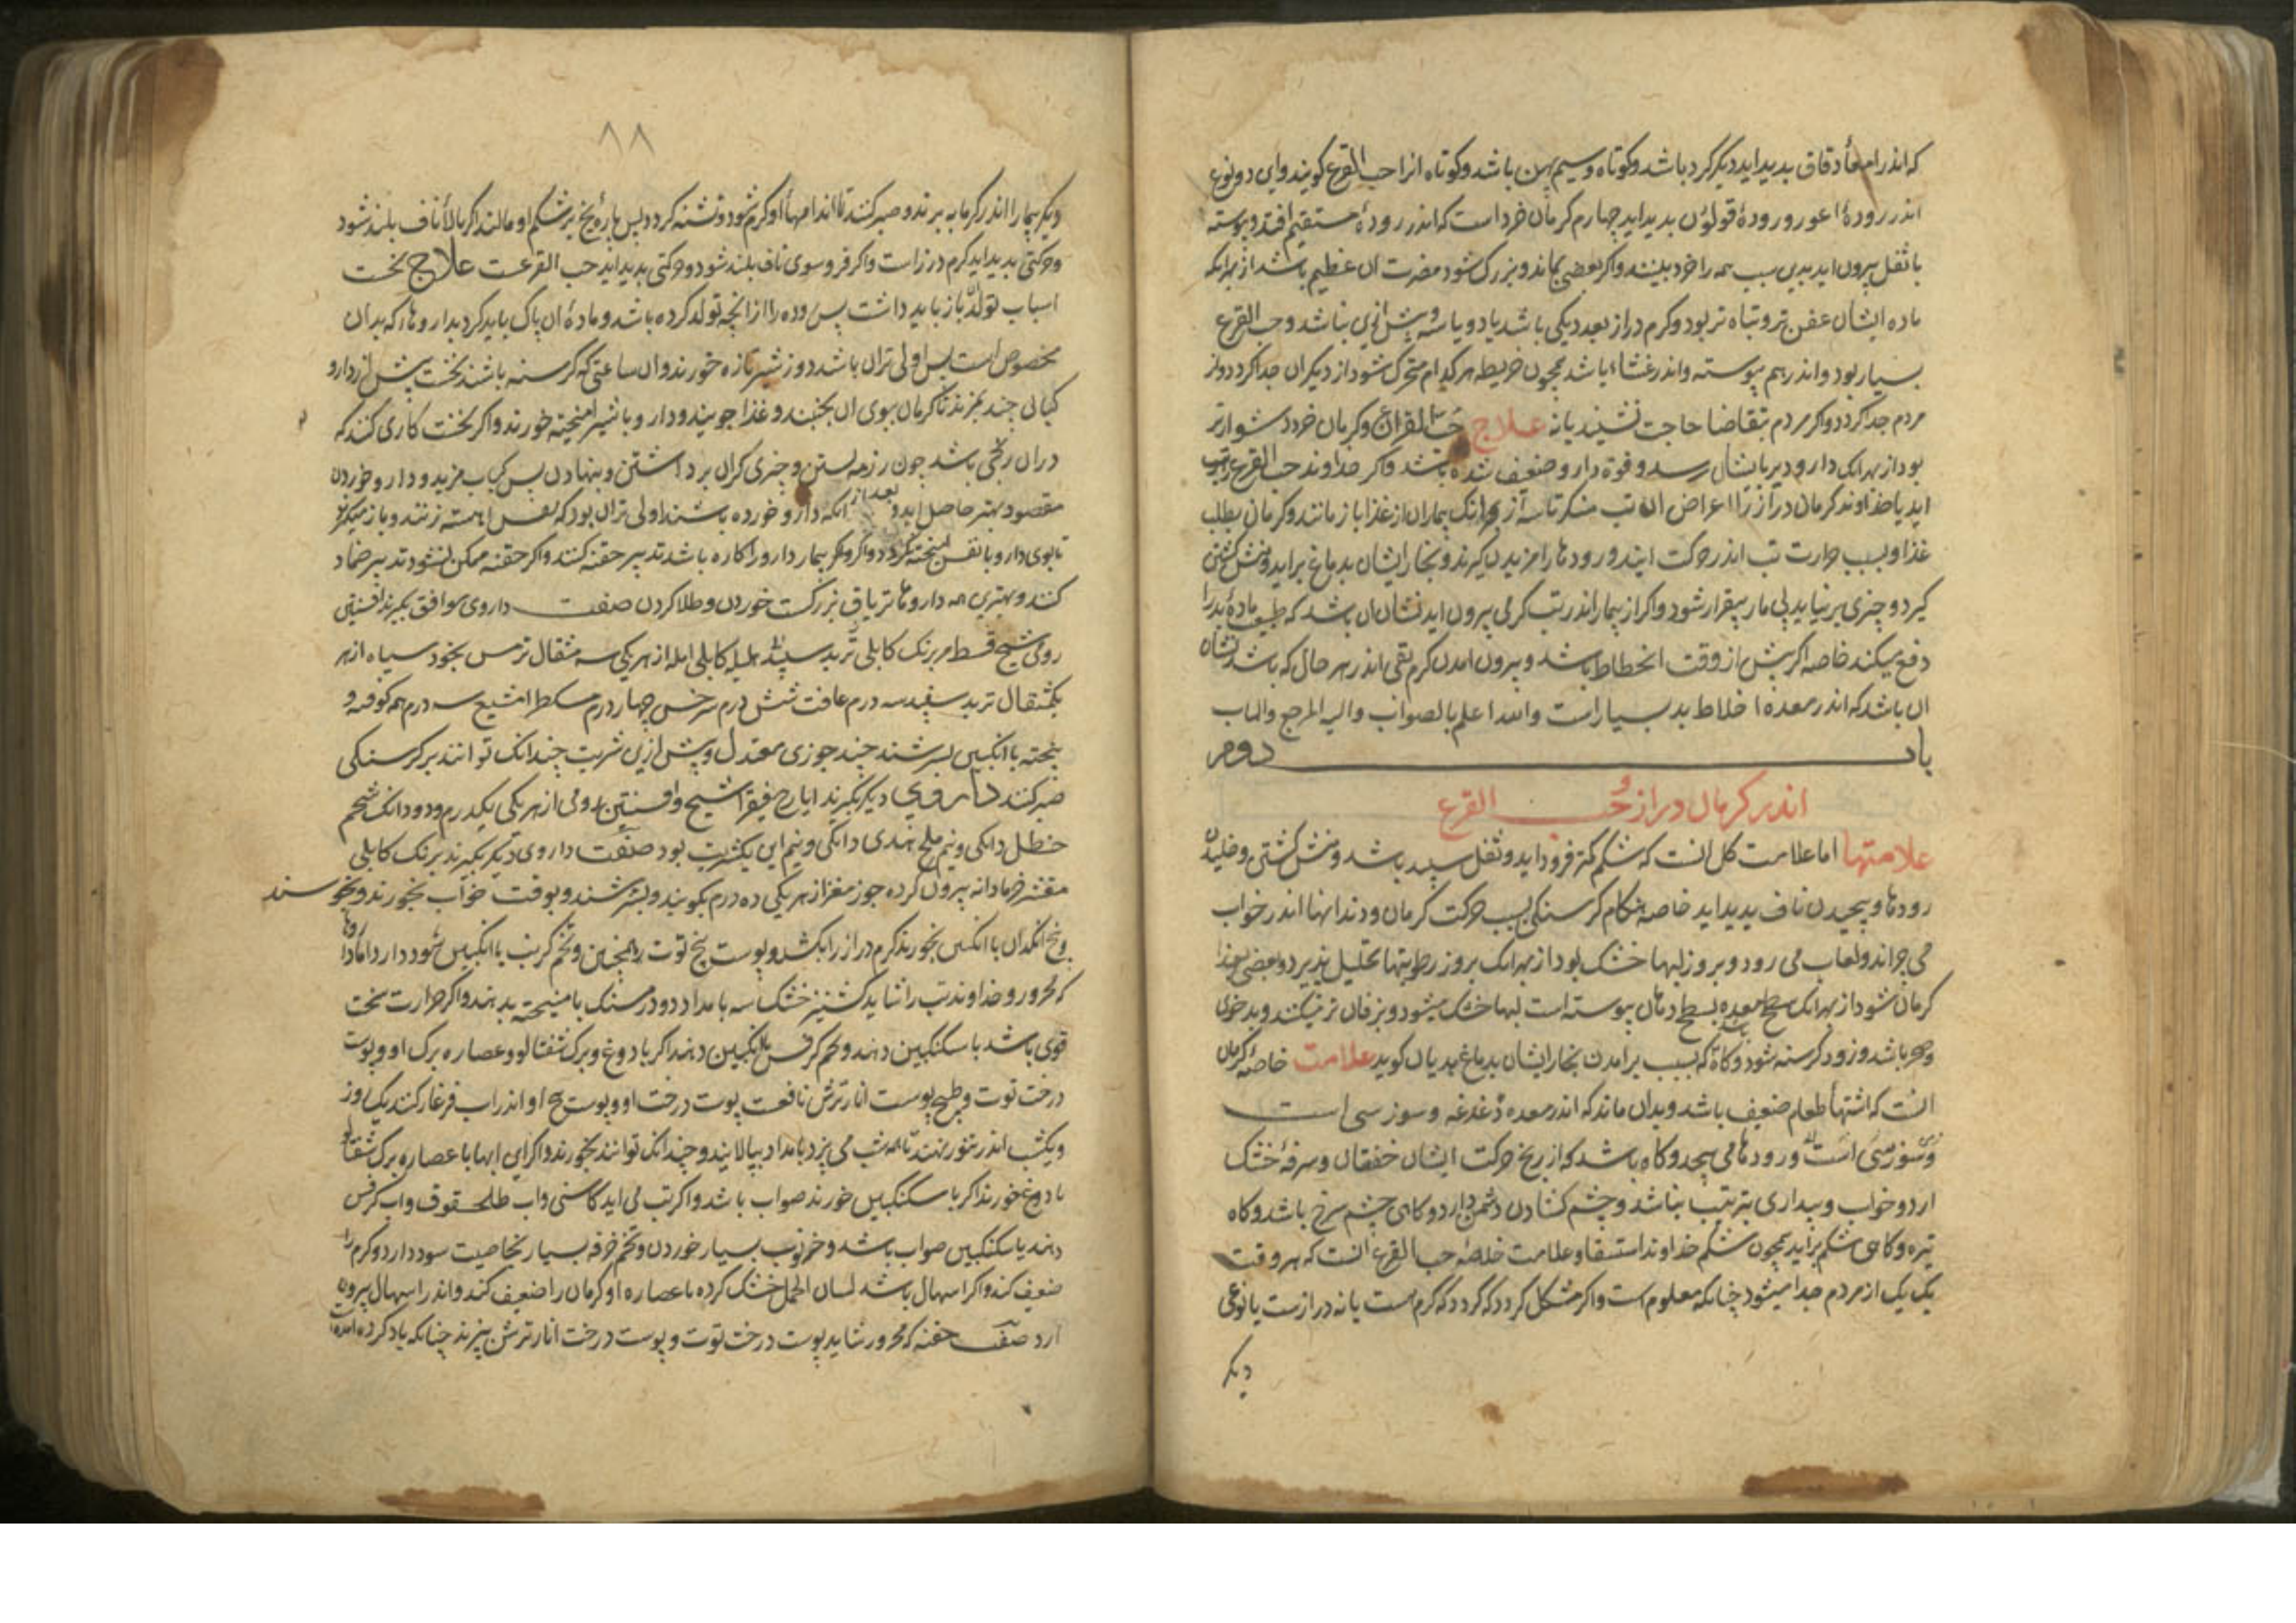 که اندر امعأ دقاق بدید اید دیگر گرد باشد و کوتاه و سیم پهن باشد و کوتاه انرا حب القرع کویند و این دو نوع
اندر رودهٔ اعور و رودهٔ قولون بدید اید چهارم کرمان خرد است که اندر رودهٔ مستقیم افتد و پیوسته
با ثفل بیرون اید بدین سبب همه را خرد بینند و اکر بعضی بماند و بزرک شود مضرت ان عظیم باشد از بهرانکه
ماده ایشان عفن تر و تباه تر بود و کرم دراز بعد دیکی باشد یا دو یا سه و بیش ازین نباشد و حب القرع
بسیار بود و اندر هم پیوسته و اندر غشاء باشد همچون خریطه هر کدام متحرک شود از دیکران جدا کردد و از
مردم جدا کردد و اکر مردم بتقاضا حاجت نشیند یا نه علاج حب القرع و کرمان خرد دشوارتر
بود از بهرانک دارو دیر بایشان رسد و قوة دارو ضعیف شده باشد و اکر خداوند حب القرع را تب
اید یا خداوند کرمان دراز را اعراض ان تب منکرتر از بهرانک بیماران از غذا باز مانند و کرمان بطلب
غذا و بسبب حرارت تب اندر حرکت ایند و رودها را مزیدن کیرند و بخار ایشان بدماغ براید و منش کشتن
کیرد و چیزی برنیاید بیمار بیقرار شود و اکر از بیمار اندر تب کرمی بیرون اید نشان ان باشد که طبیعت مادهٔ بد را
دفع میکند خاصه اکر پیش از وقت انحطاط باشد و بیرون امدن کرم بقی اندر هر حال که باشد نشان
ان باشد که اندر معده اخلاط بد بسیار است والله اعلم بالصواب والیه المرجع والماب
باب دوم
اندر کرمان دراز و حب القرع
علامتها اما علامت کل انست که شکم کمتر فرود اید و ثفل سپید باشد و منش کشتن و خلیدن
رودها و پیچیدن ناف بدید اید خاصه هنکام کرسنکی بسبب حرکت کرمان و دندانها اندر خواب
می خراند و لعاب می رود و بروز لبها خشک بود از بهرانک بروز رطوبتها تحلیل پذیرد و بعضی غذا
کرمان شود از بهرانک سطح معده بسطح دهان پیوسته است لبها خشک میشود و بزفان تر میکند و بدخوی
و ضجر باشد و زود کرسنه شود و کاه که بسبب برامدن بخار ایشان بدماغ هذیان کوید علامت خاصهٔ کرمان
انست که اشتهأ طعام ضعیف باشد و بدان ماند که اندر معده دغدغه و سوزسی است
و سوزسی است و رودها می پیچد و کاه باشد که از رنج حرکت ایشان خفقان و سرفهٔ خشک
ارد و خواب و بیداری بترتیب نباشد و چشم کشادن دشمن دارد و کاهی چشم سرخ باشد و کاه
تیره و کاهی شکم براید همچون شکم خداوند استسقا و علامت خاصهٔ حب القرع انست که هر وقت
یک یک از مردم جدا میشود چنانکه معلوم است و اکر مشکل کردد که کرم هست یا نه دراز است یا نوعی
دیکر
۸۸
دیکر بیمار را اندر کرمابه برند و صبر کنند تا اندامهأ او کرم شود و تشنه کردد پس پارهٔ یخ بر شکم او مالند اکر بالأ ناف بلند شود
و حرکتی بدید اید کرم دراز است و اکر فروسوی ناف بلند شود و حرکتی بدید اید حب القرعست علاج نخست
اسباب تولد باز باید داشت پس روده را از انچه تولد کرده باشد و مادهٔ ان پاک باید کرد بداروها که بدان
مخصوص است پس اولی تران باشد دو روز شیر تازه خورند و ان ساعتی که کرسنه باشند نخست پیش از دارو
کبابی چند بمزند تا کرمان ببوی ان بجنبند و غذا جویند و دارو با شیر امیخته خورند و اکر نخست کاری کنند که
دران رنجی باشد چون رزمه بستن و چیزی کران برداشتن و بنهادن پس کباب مزیدن و دارو خوردن
مقصود بهتر حاصل اید و بعد از انکه دارو خورده باشند اولی تران بود که نفس اهسته زنند و باز میکیرند
تا بوی دارو با نفس امیخته نکردد و اکر بیمار دارو را کاره باشد تدبیر حقنه کنند و اکر حقنه ممکن نشود تدبیر ضماد
کنند و بهترین همه داروها تریاق بزرکست خوردن و طلا کردن صفت داروی موافق بکیرند افسنتین
رومی شیح قسط مر برنک کابلی تربد سپید هلیله کابلی امله از هر یکی سه مثقال ترمس نخود سیاه از هر
یکمثقال تربد سفید سه درم عافت شش درم سرخس چهار درم مسکطرامشیع سه درم همه کوفته و
بیخته با انکبین بسرشند چند جوزی معتدل و پیش ازین شربت چندانک توانند بر کرسنکی
صبر کنند داروی دیکر بکیرند ایارج فیقرا شیح و افسنتین رومی از هر یکی یکدرم و دو دانک شحم
حنظل دانکی و نیم ملح هندی دانکی و نیم این یکشربت بود صفت داروی دیکر بکیرند برنک کابلی
مقشر خرما دانه بیرون کرده جوز مغز از هر یکی ده درم بکویند و بسرشند و بوقت خواب بخورند و بخوسند
و بیخ انکدان با انکبین بخورند کرم دراز را بکشد و پوست بیخ توت همچنین و تخم کرنب با انکبین سود دارد اما داروها
که محرور و خداوند تب را شاید کشنیز خشک سه بامداد دو درمسنک با میبخته بدهند و اکر حرارت سخت
قوی باشد با سکنکبین دهند و تخم کرفس با سکنکبین دهند اکر با دوغ و برک شفتالو و عصاره برک او و پوست
درخت توت و طبیخ پوست انار ترش نافعست پوست درخت او و پوست بیخ او اندر اب فرغار کنند یک روز
و یکشب اندر تنور نهند تا همه شب می پزد بامداد بپالایند و چندانک توانند بخورند و اکر این ابها با عصاره برک شفتالو
یا دوغ خورند اکر با سکنکبین خورند صواب باشد و اکر تب می اید کاسنی و اب طلحقوق و اب کرفس
دهند با سکنکبین صواب باشد و خرنوب بسیار خوردن و تخم خرفه بسیار بخاصیت سود دارد و کرم را
ضعیف کند و اکر اسهال باشد لسان الحمل خشک کرده با عصاره او کرمان را ضعیف کند و اندر اسهال بیرون
ارد صفت حقنه که محرور شاید پوست درخت توت و پوست درخت انار ترش بپزند چنانکه یاد کرده امده است